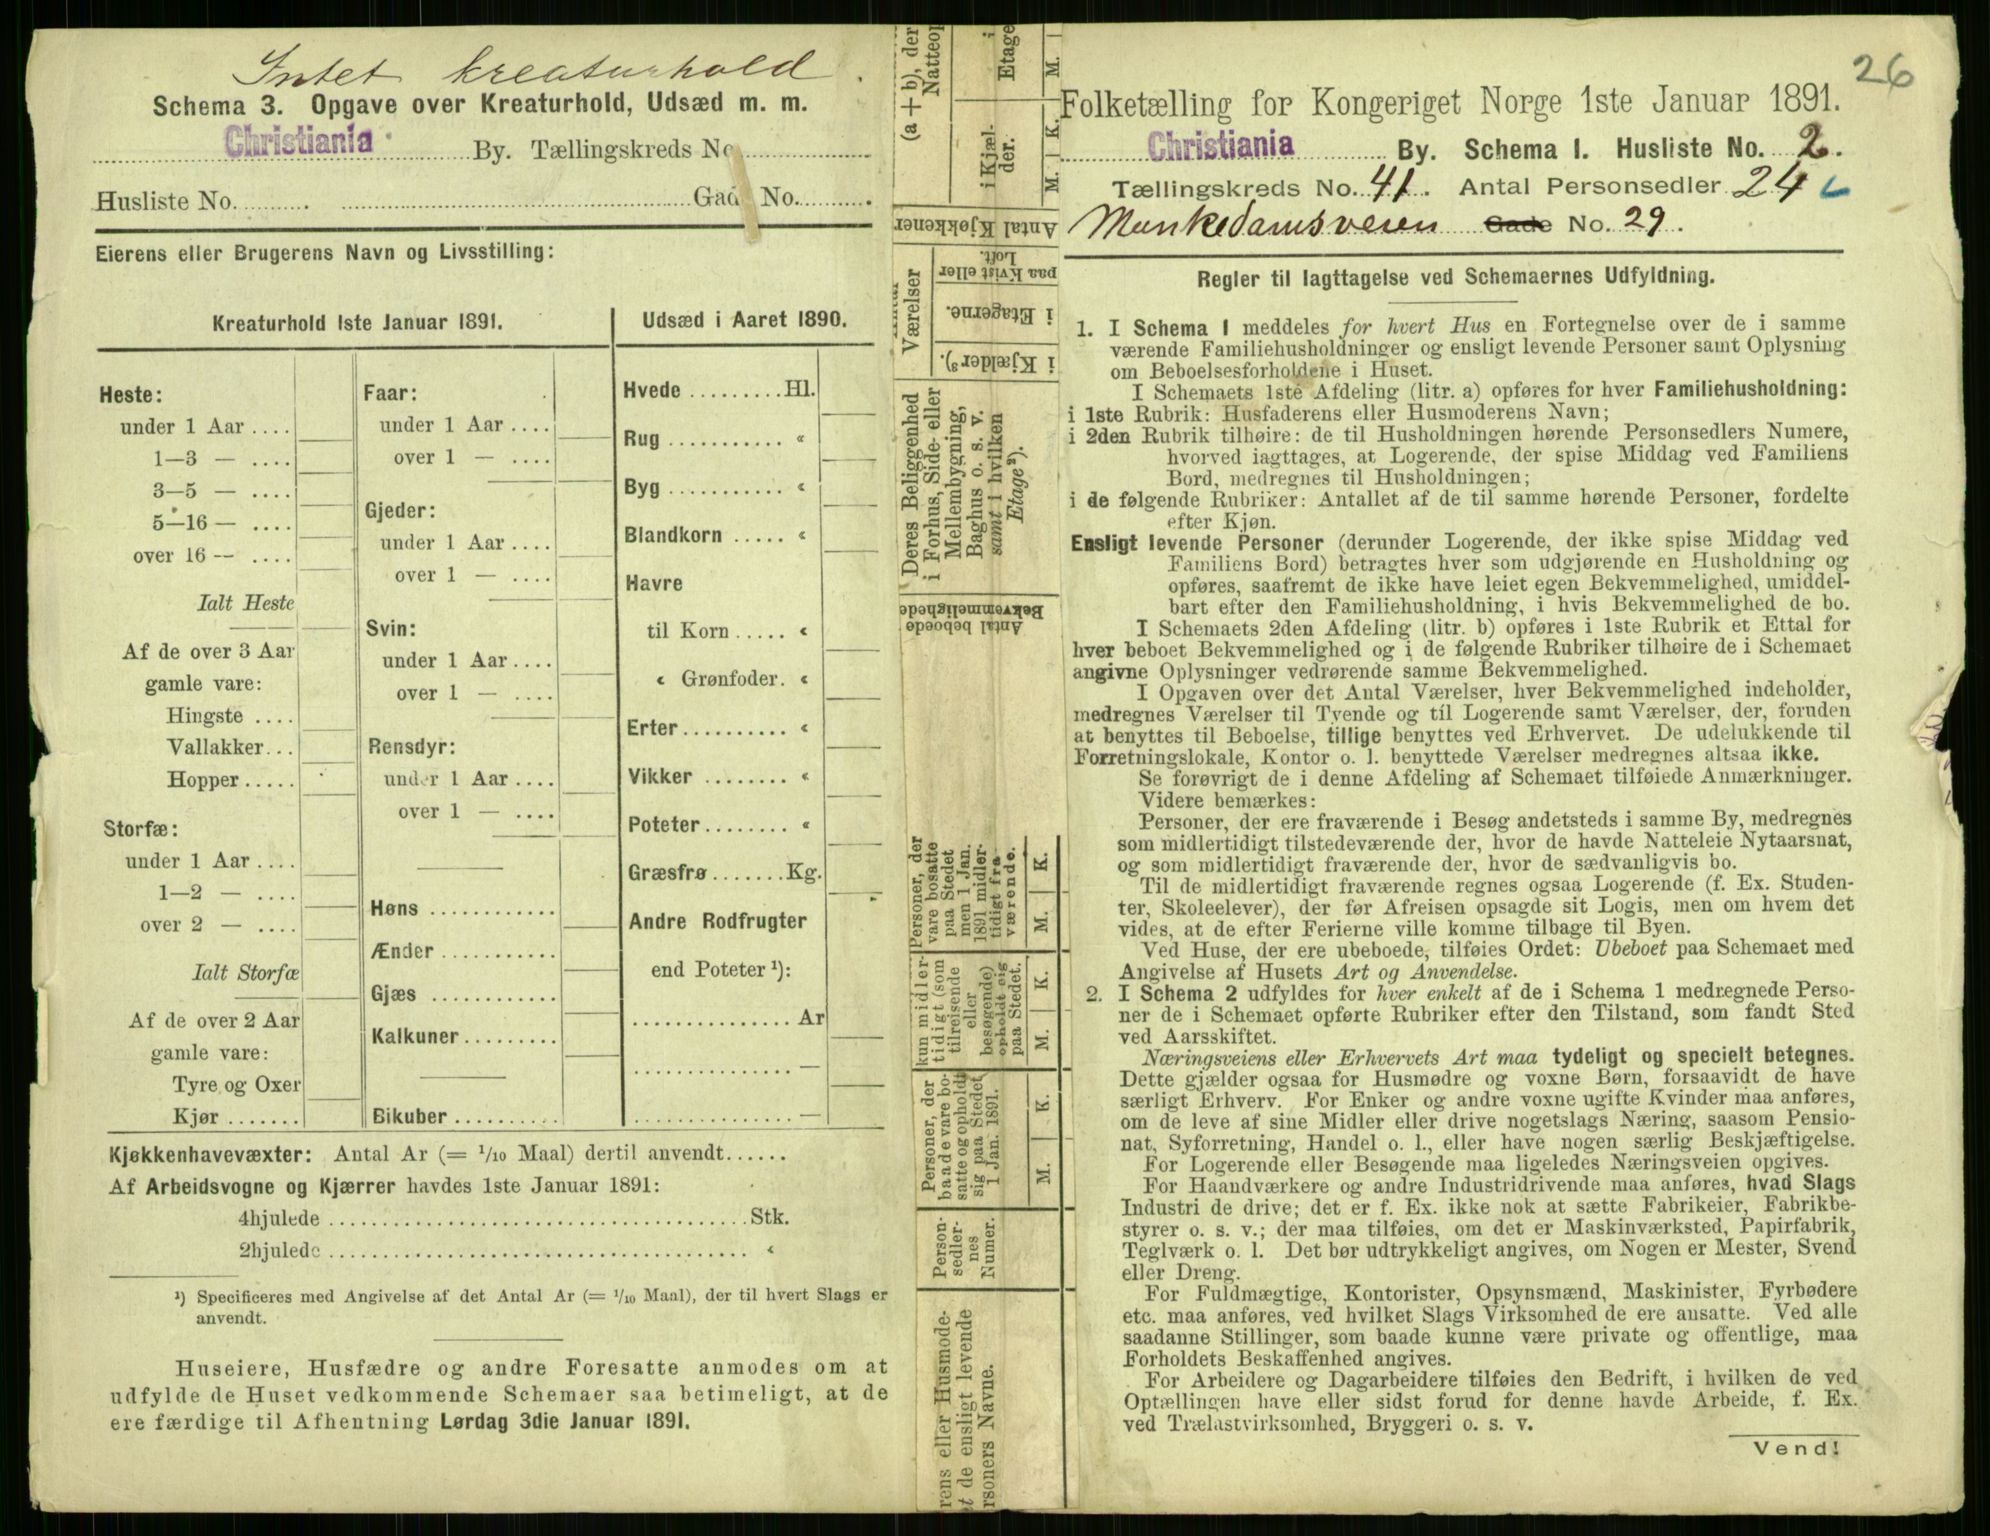 Intet kreaturhold.
Schema 3. Opgave over Kreaturhold, Udsæd m. m.
Christiania By. Tællingskreds No.
Husliste No. Gade No.
Eierens eller Brugerens Navn og Livsstilling:
Kreaturhold 1ste Januar 1891.
Heste:
under 1 Aar
1—3 —
3—5 —
5—16 —
over 16 —
Ialt Heste
Af de over 3 Aar
gamle vare:
Hingste
Vallakker
Hopper
Storfæ:
under 1 Aar
1—2 —
over 2 —
Ialt Storfæ
Af de over 2 Aar
gamle vare:
Tyre og Oxer
Kjør
Faar:
under 1 Aar
over 1 —
Gjeder:
under 1 Aar
over 1 —
Svin:
under 1 Aar
over 1 —
Rensdyr:
under 1 Aar
over 1 —
Høns
Ænder
Gjæs
Kalkuner
Bikuber
Udsæd i Aaret 1890.
Hvede Hl.
Rug «
Byg «
Blandkorn «
Havre
til Korn «
« Grønfoder. «
Erter «
Vikker «
Poteter «
Græsfrø Kg.
Andre Rodfrugter
end Poteter ¹):
Ar
—
—
Kjøkkenhavevæxter: Antal Ar (= 1/10 Maal) dertil anvendt
Af Arbeidsvogne og Kjærrer havdes 1ste Januar 1891:
4hjulede Stk.
2hjulede «
¹) Specificeres med Angivelse af det Antal Ar (= 1/10 Maal), der til hvert Slags er
anvendt.
Huseiere, Husfædre og andre Foresatte anmodes om at
udfylde de Huset vedkommende Schemaer saa betimeligt, at de
ere færdige til Afhentning Lørdag 3die Januar 1891.
(a + b), der
Natteop
i
Etage
M.
i Kjæl-
der.
K.
M.
Antal Kjøkkener
Værelser
paa Kvist eller
Loft.
i Etagerne.
i Kjælder³).
Deres Beliggenhed
i Forhus, Side- eller
Mellembygning,
Baghus o. s. v.
samt i hvilken
Etage²).
Antal beboede
Bekvemmelighede
Personer, der
vare bosatte
paa Stedet
men 1 Jan.
1891 midler-
tidigt fra
værende.
K.
M.
kun midler-
tidigt (som
tilreisende
eller
besøgende)
opholdt sig
paa Stedet.
K.
M.
Personer, der
baade vare bo-
satte og opholdt
sig paa Stedet
1 Jan. 1891.
K.
M.
Person-
sedler-
nes
Numer.
rens eller Husmode-
t de ensligt levende
rsoners Navne.
26
Folketælling for Kongeriget Norge 1ste Januar 1891.
Christiania By. Schema I. Husliste No. 2.
Tællingskreds No. 41. Antal Personsedler 24
Munkedamsveien Gade No. 29.
Regler til Iagttagelse ved Schemaernes Udfyldning.
1. I Schema 1 meddeles for hvert Hus en Fortegnelse over de i samme
værende Familiehusholdninger og ensligt levende Personer samt Oplysning
om Beboelsesforholdene i Huset.
I Schemaets 1ste Afdeling (litr. a) opføres for hver Familiehusholdning:
i 1ste Rubrik: Husfaderens eller Husmoderens Navn;
i 2den Rubrik tilhøire: de til Husholdningen hørende Personsedlers Numere,
hvorved iagttages, at Logerende, der spise Middag ved Familiens
Bord, medregnes til Husholdningen;
i de følgende Rubriker: Antallet af de til samme hørende Personer, fordelte
efter Kjøn.
Ensligt levende Personer (derunder Logerende, der ikke spise Middag ved
Familiens Bord) betragtes hver som udgjørende en Husholdning og
opføres, saafremt de ikke have leiet egen Bekvemmelighed, umiddel-
bart efter den Familiehusholdning, i hvis Bekvemmelighed de bo.
I Schemaets 2den Afdeling (litr. b) opføres i 1ste Rubrik et Ettal for
hver beboet Bekvemmelighed og i de følgende Rubriker tilhøire de i Schemaet
angivne Oplysninger vedrørende samme Bekvemmelighed.
I Opgaven over det Antal Værelser, hver Bekvemmelighed indeholder,
medregnes Værelser til Tyende og til Logerende samt Værelser, der, foruden
at benyttes til Beboelse, tillige benyttes ved Erhvervet. De udelukkende til
Forretningslokale, Kontor o. l. benyttede Værelser medregnes altsaa ikke.
Se forøvrigt de i denne Afdeling af Schemaet tilføiede Anmærkninger.
Videre bemærkes:
Personer, der ere fraværende i Besøg andetsteds i samme By, medregnes
som midlertidigt tilstedeværende der, hvor de havde Natteleie Nytaarsnat,
og som midlertidigt fraværende der, hvor de sædvanligvis bo.
Til de midlertidigt fraværende regnes ogsaa Logerende (f. Ex. Studen-
ter, Skoleelever), der før Afreisen opsagde sit Logis, men om hvem det
vides, at de efter Ferierne ville komme tilbage til Byen.
Ved Huse, der ere ubeboede, tilføies Ordet: Ubeboet paa Schemaet med
Angivelse af Husets Art og Anvendelse.
2. I Schema 2 udfyldes for hver enkelt af de i Schema 1 medregnede Perso-
ner de i Schemaet opførte Rubriker efter den Tilstand, som fandt Sted
ved Aarsskiftet.
Næringsveiens eller Erhvervets Art maa tydeligt og specielt betegnes.
Dette gjælder ogsaa for Husmødre og voxne Børn, forsaavidt de have
særligt Erhverv. For Enker og andre voxne ugifte Kvinder maa anføres,
om de leve af sine Midler eller drive nogetslags Næring, saasom Pensio-
nat, Syforretning, Handel o. l., eller have nogen særlig Beskjæftigelse.
For Logerende eller Besøgende maa ligeledes Næringsveien opgives.
For Haandværkere og andre Industridrivende maa anføres, hvad Slags
Industri de drive; det er f. Ex. ikke nok at sætte Fabrikeier, Fabrikbe-
styrer o. s. v.; der maa tilføies, om det er Maskinværksted, Papirfabrik,
Teglværk o. l. Det bør udtrykkeligt angives, om Nogen er Mester, Svend
eller Dreng.
For Fuldmægtige, Kontorister, Opsynsmænd, Maskinister, Fyrbødere
etc. maa anføres, ved hvilket Slags Virksomhed de ere ansatte. Ved alle
saadanne Stillinger, som baade kunne være private og offentlige, maa
Forholdets Beskaffenhed angives.
For Arbeidere og Dagarbeidere tilføies den Bedrift, i hvilken de ved
Optællingen have eller sidst forud for denne havde Arbeide, f. Ex.
ved Trælastvirksomhed, Bryggeri o. s. v.
Vend!